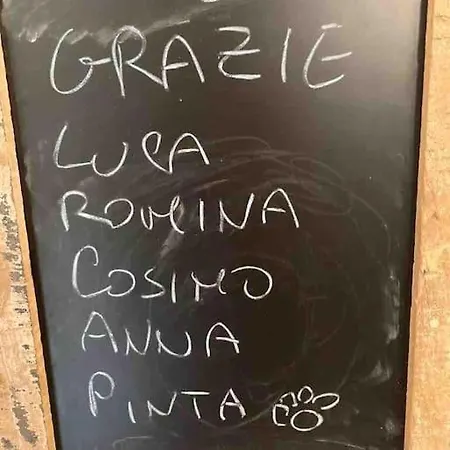 GRAZIE
LUCA
ROMINA
COSIMO
ANNA
PINTA